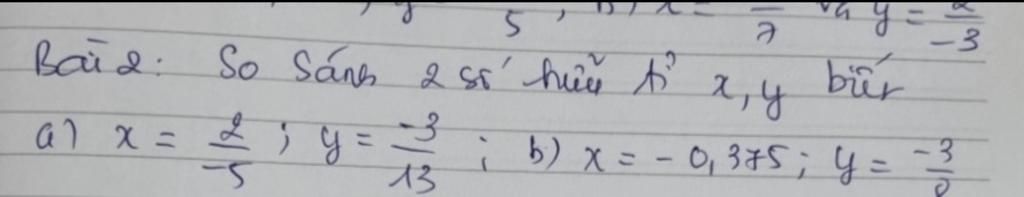 y 5 ; b) x = 7 và y = 2/-3
Bài 2: So sánh 2 số hữu tỉ x, y biết
a) x = 2/-5 ; y = -3/13 ; b) x = - 0,375 ; y = -3/